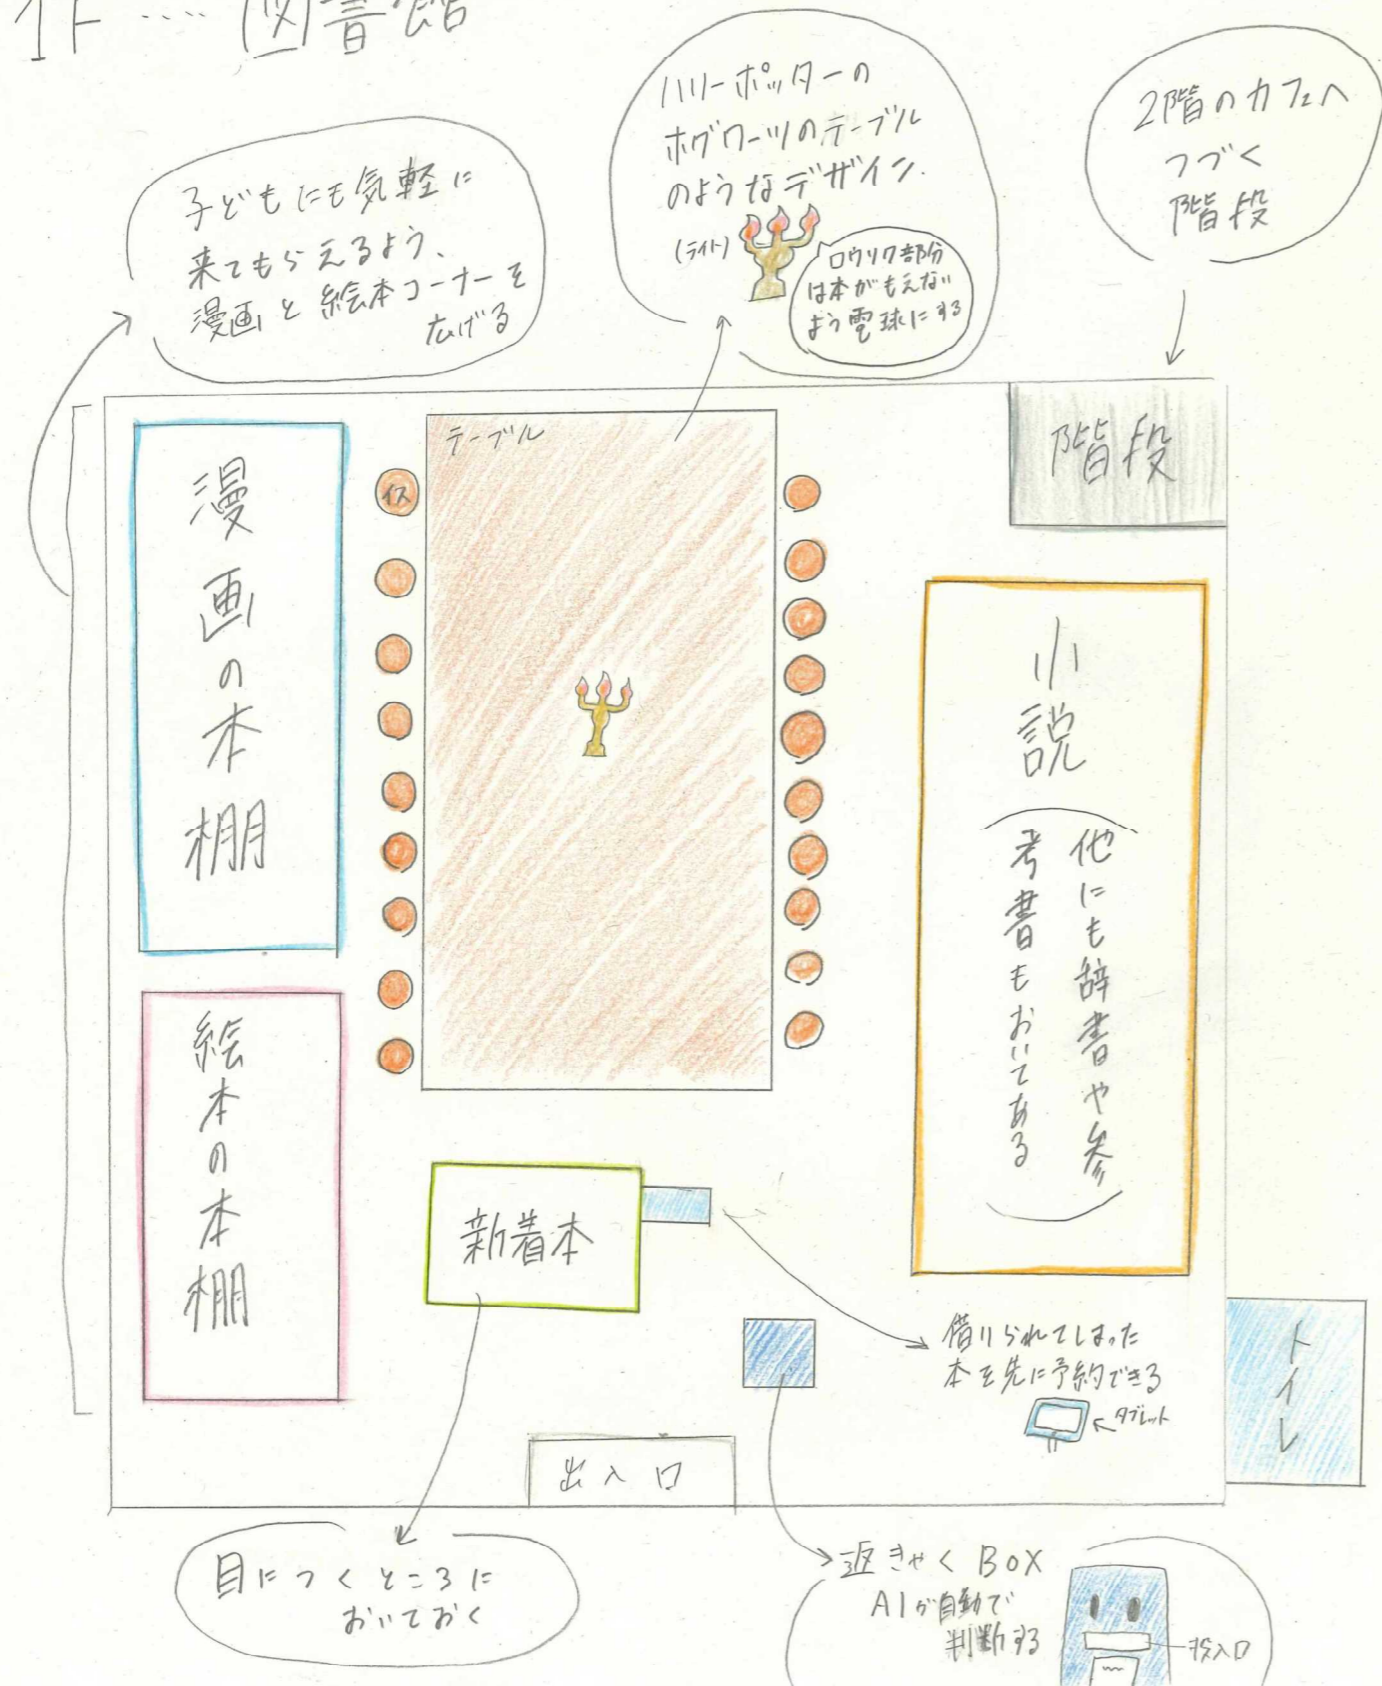 1F ‥‥ 図書館
子どもにも気軽に
来てもらえるよう、
漫画と絵本コーナーを
広げる
ハリーポッターの
ホグワーツのテーブル
のようなデザイン.
(ライト)
ロウソク部分
は本がもえない
よう電球にする
2階のカフェへ
つづく
階段
漫画の本棚
イス
テーブル
階段
小説
(他にも辞書や参
考書もおいてある)
絵本の本棚
新着本
借りられてしまった
本を先に予約できる
タブレット
トイレ
出入口
目につくところに
おいておく
返きゃくBOX
AIが自動で
判断する
投入口